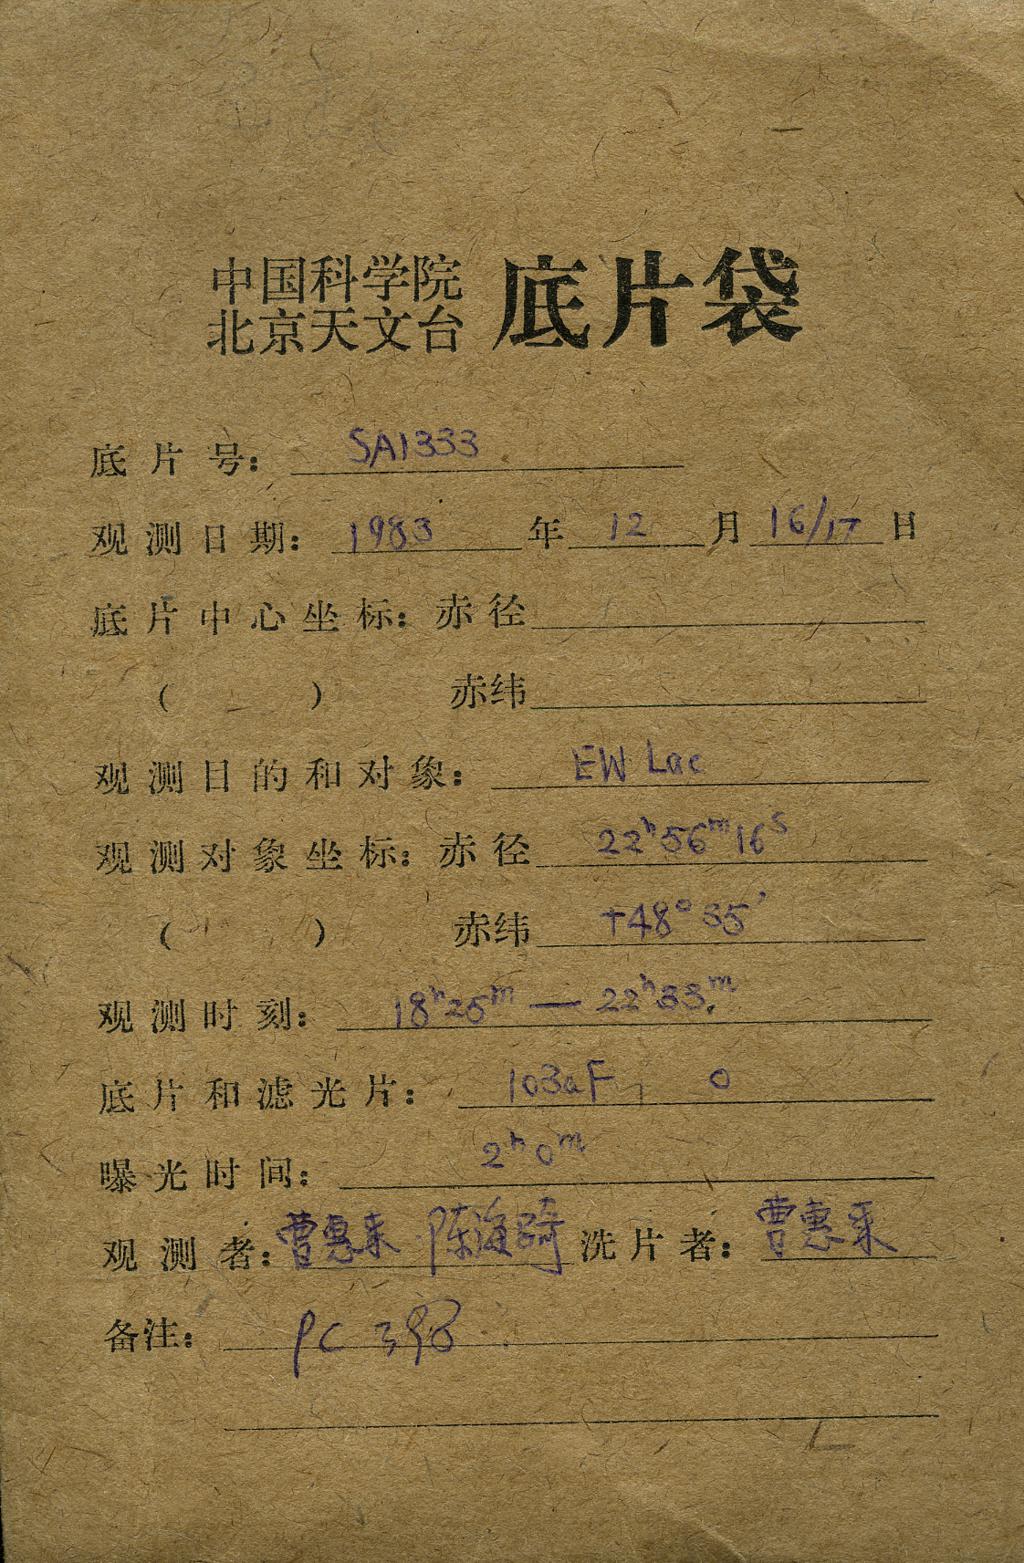 中国科学院
北京天文台 底片袋
底片号: SA1333
观测日期: 1983 年 12 月 16/17 日
底片中心坐标: 赤径
( ) 赤纬
观测目的和对象: EW Lac
观测对象坐标: 赤径 22h56m16s
( ) 赤纬 +48°35′
观测时刻: 18h25m — 22h33m
底片和滤光片: 103aF, 0
曝光时间: 2h0m
观测者: 曹惠来 陈海骑 洗片者: 曹惠来
备注: PC 398